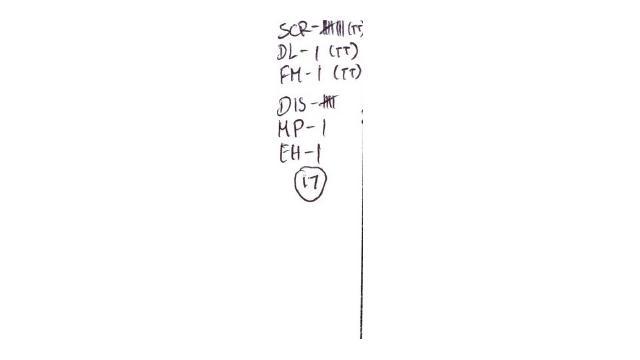 SCR-卌III (TT)
DL-1 (TT)
FM-1 (TT)
DIS-卌
MP-1
EH-1
17